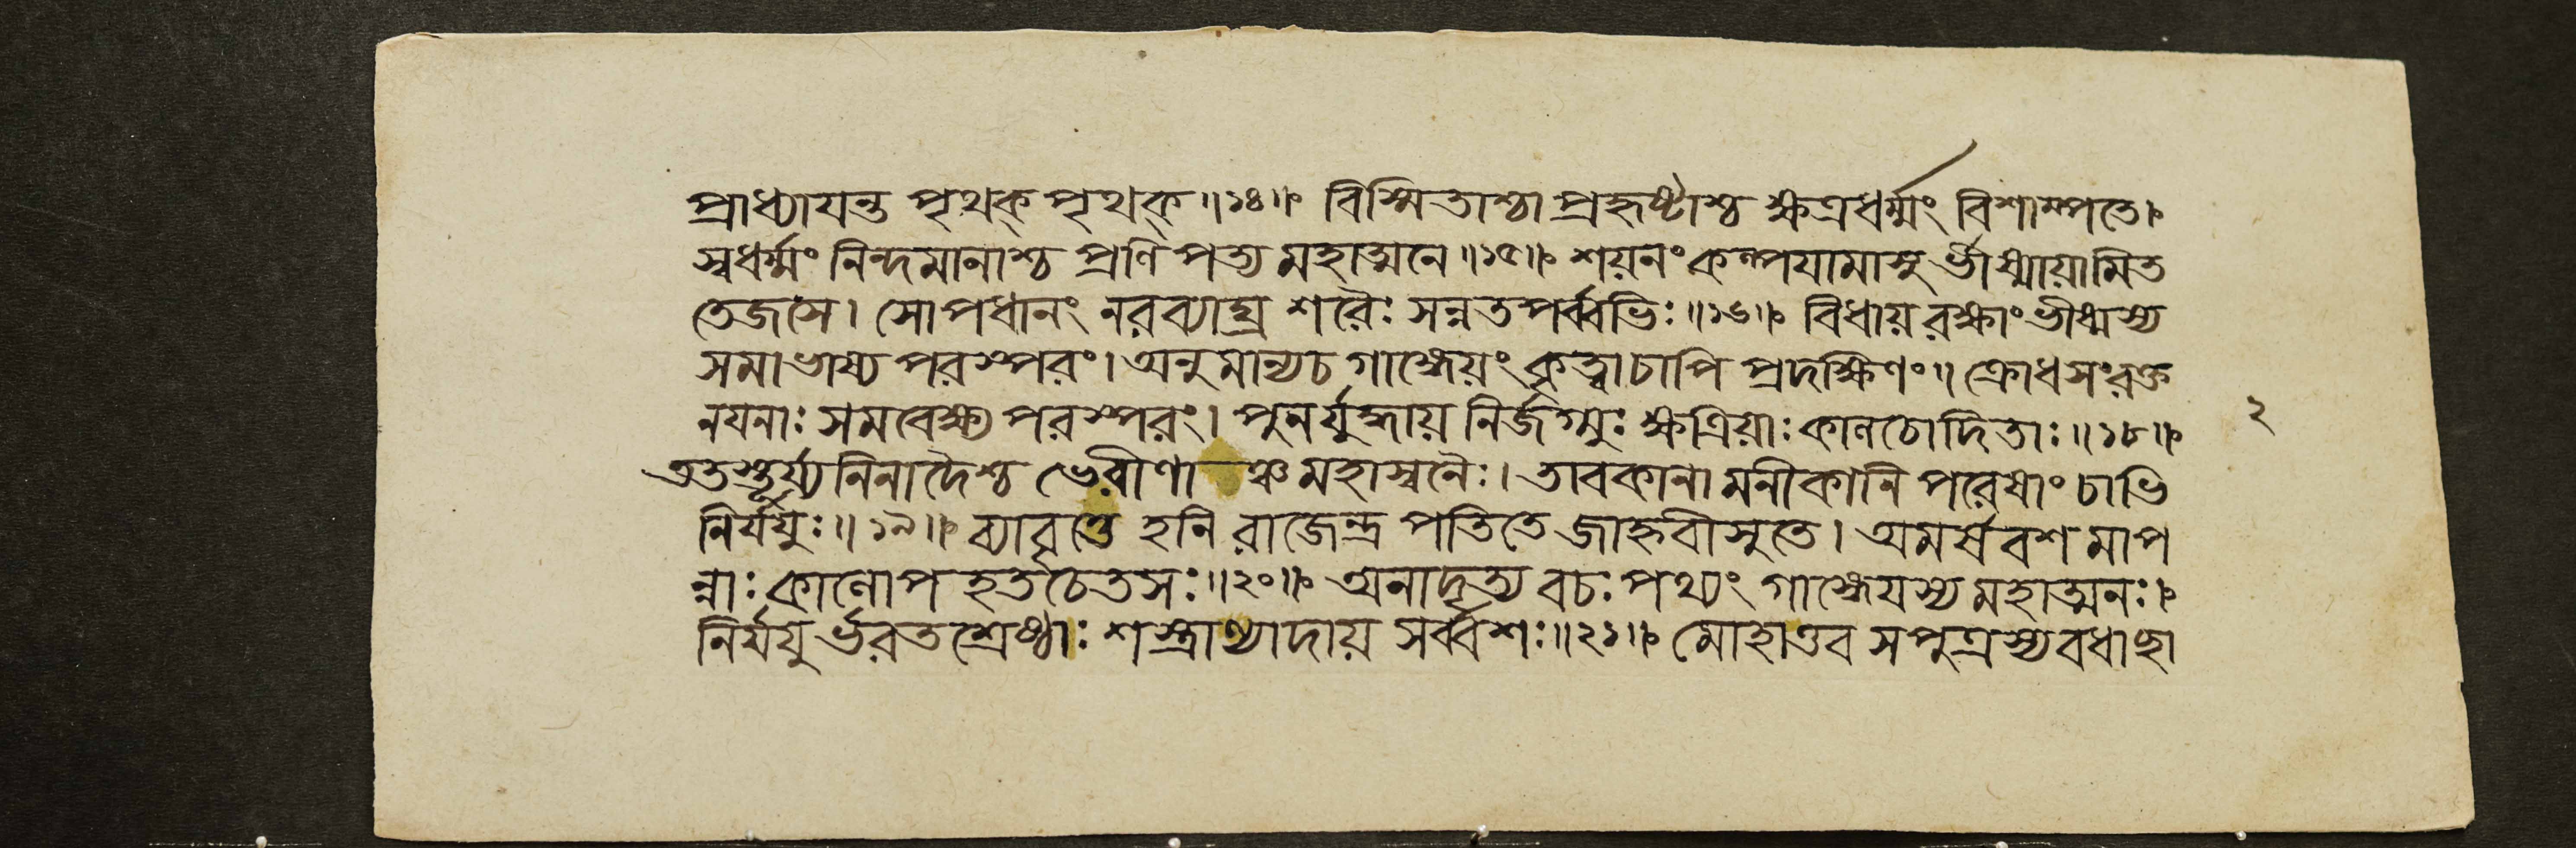 প্রাধ্যাযন্ত পৃথক্ পৃথক্॥১৪॥ বিস্মিতাশ্চা প্রহৃষ্টাশ্চ ক্ষত্রধর্ম্মং বিশাম্পতে।
স্বধর্ম্মং নিন্দমানাশ্চ প্রণিপত্য মহাত্মনে॥১৫॥ শয়নং কল্পযামাসু র্ভীষ্মায়ামিত
তেজসে। সোপধানং নরব্যাঘ্র শরৈঃ সন্নতপর্ব্বভিঃ॥১৬॥ বিধায় রক্ষাং ভীষ্মস্য
সমাভাষ্য পরস্পরং। অনুমান্যচ গাঙ্গেয়ং কৃত্বাচাপি প্রদক্ষিণং॥ ক্রোধসংরক্ত
নযনাঃ সমবেক্ষ্য পরস্পরং। পুনর্যুদ্ধায় নির্জগ্মুঃ ক্ষত্রিয়াঃ কালচোদিতাঃ॥১৮॥
২
এতস্তূর্য্যনিনাদৈশ্চ ভেরীণা ঞ্চ মহাস্বনৈঃ। তাবকানামনীকানি পরেষাং চাভি
নির্যযুঃ॥১৯॥ ব্যাবৃত্তে হনি রাজেন্দ্র পতিতে জাহ্নবীসুতে। অমর্ষবশমাপ
ন্নাঃ কালোপহতচেতসঃ॥২০॥ অনাদৃত্য বচঃ পথ্যং গাঙ্গেযস্য মহাত্মনঃ।
নির্যযু র্ভরতশ্রেষ্ঠাঃ শস্ত্রাণ্যাদায় সর্ব্বশঃ॥২১॥ মোহাত্তব সপুত্রস্য বধাচ্ছা